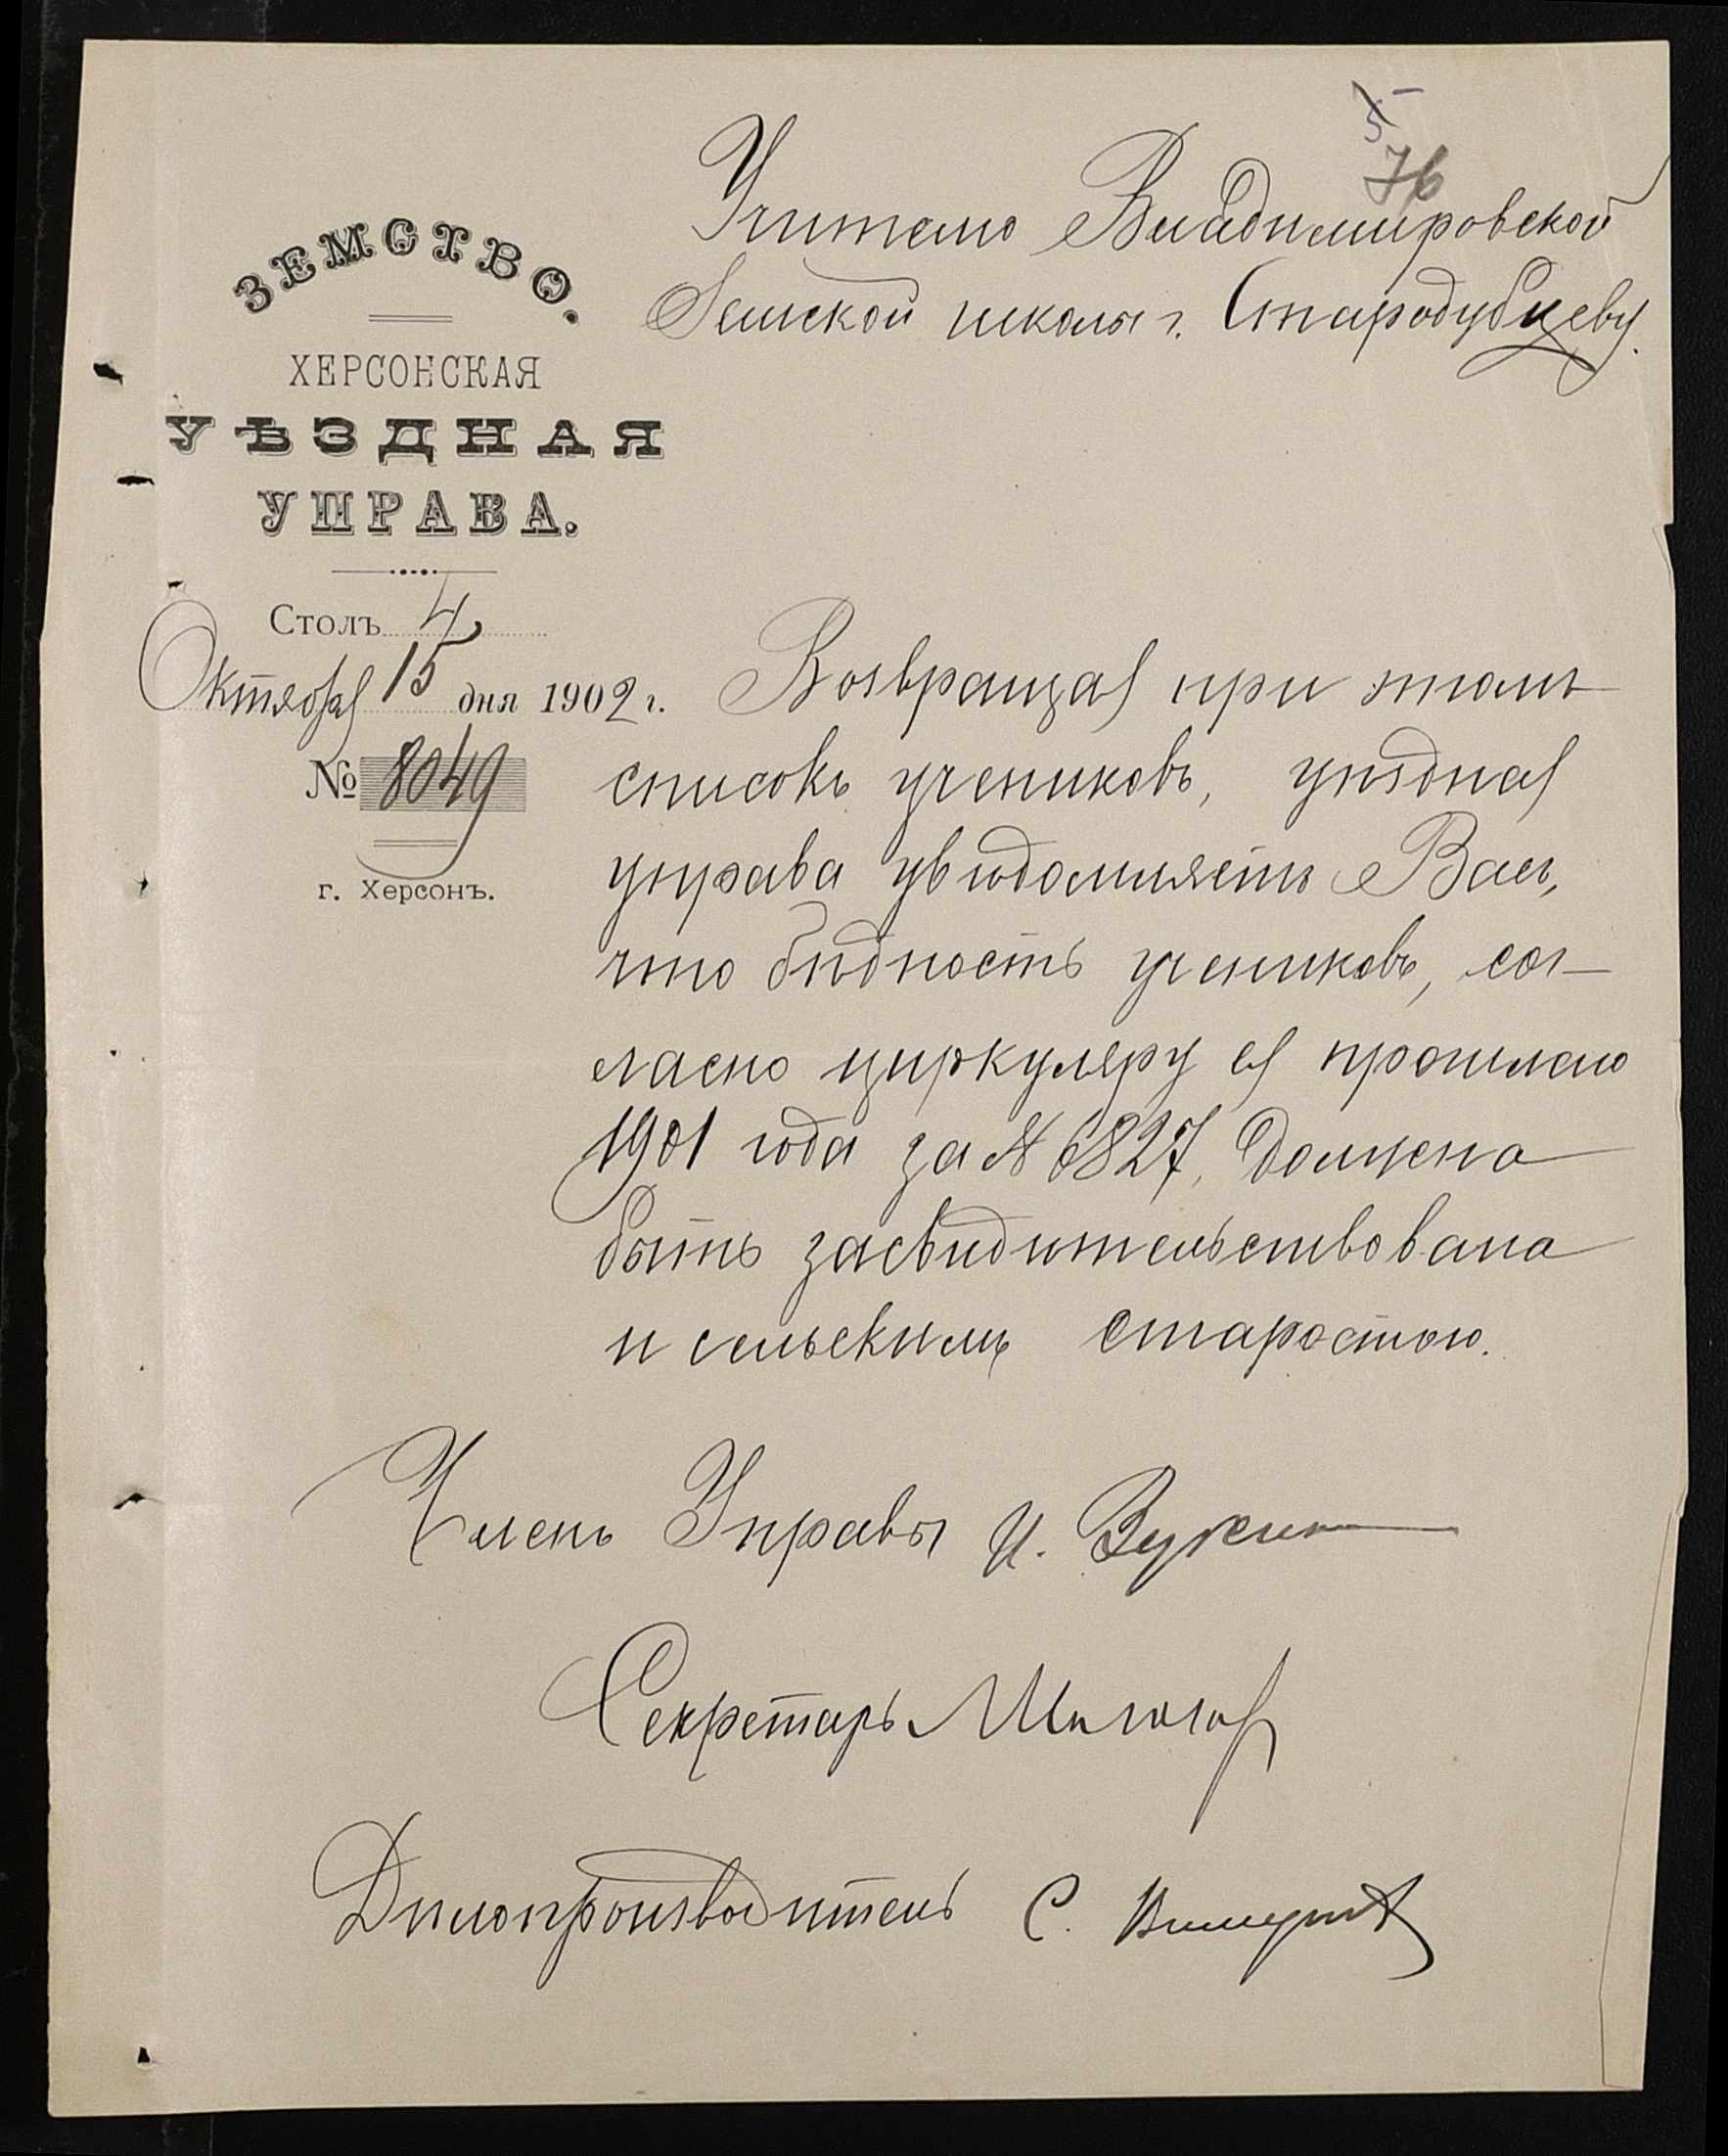 5
76
Учителю Владимировской
Земской школы г. Стародубцеву.
ЗЕМСТВО.
ХЕРСОНСКАЯ
УѢЗДНАЯ
УПРАВА.
Столъ 4
Октября 15 дня 1902 г.
№ 8049
г. Херсонъ.
Возвращая при этомъ
списокъ учениковъ, уѣздная
управа увѣдомляетъ Васъ,
что бѣдность учениковъ, сог-
ласно циркуляру ея прошлаго
1901 года за № 6827, должна
быть засвидѣтельствована
и сельскимъ старостою.
Членъ Управы И.
Секретарь
Дѣлопроизводитель С.